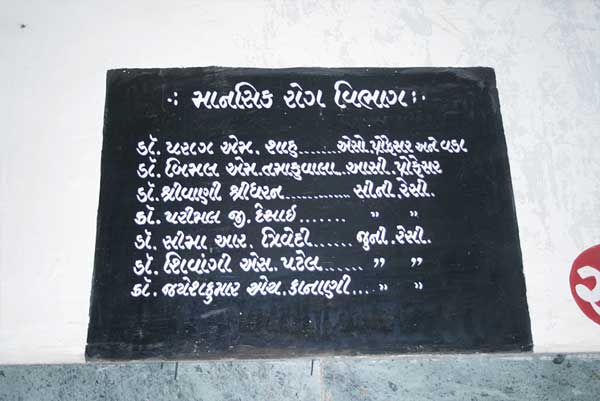 : માનસિક રોગ વિભાગ :
ડૉ. પરાગ એમ. શાહ......એસો. પ્રોફેસર અને વડા
ડૉ. બિમલ એમ. તમાકુવાલા...આસી. પ્રોફેસર
ડૉ. શ્રીવાણી શ્રીધરન............સીની. રેસી.
ડૉ. પરીમલ જી. દેસાઈ....... " "
ડૉ. સીમા આર. ત્રિવેદી...... જુની. રેસી.
ડૉ. શિવાંગી એસ. પટેલ....... " "
ડૉ. જયેશકુમાર એચ. કાનાણી.... " "